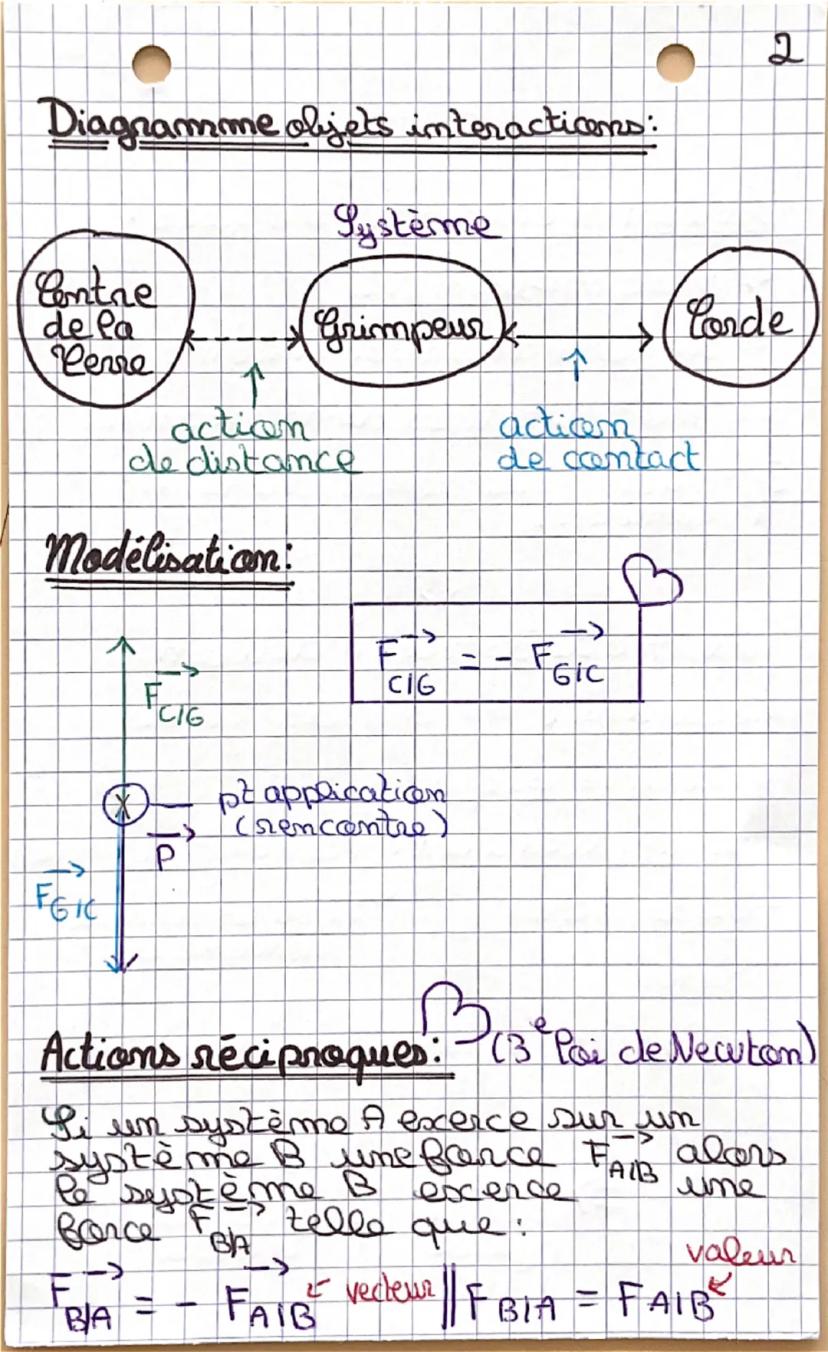 2
Diagramme objets interactions:
Système
Centre
de la
Terre
Grimpeur
Corde
action
de distance
action
de contact
Modélisation:
F C/G = - F G/C
F C/G
X
pt application
(rencontre)
P
F G/C
Actions réciproques: (3e loi de Newton)
Si un système A exerce sur un
système B une force F A/B alors
le système B exerce une
force F B/A telle que:
valeur
F B/A = - F A/B ← vecteur || F B/A = F A/B